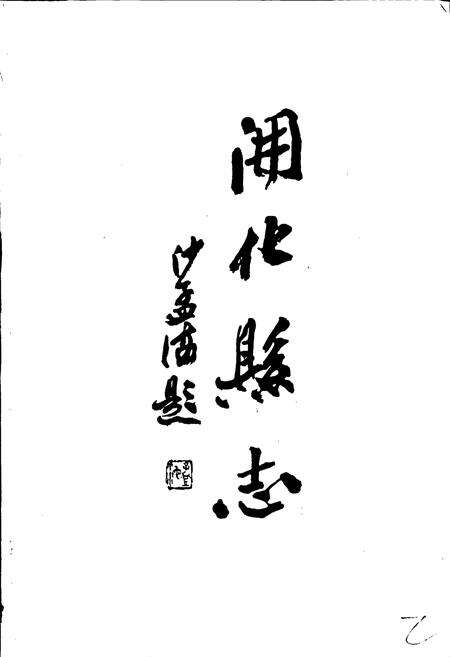 開化縣志
沙孟海題
乙